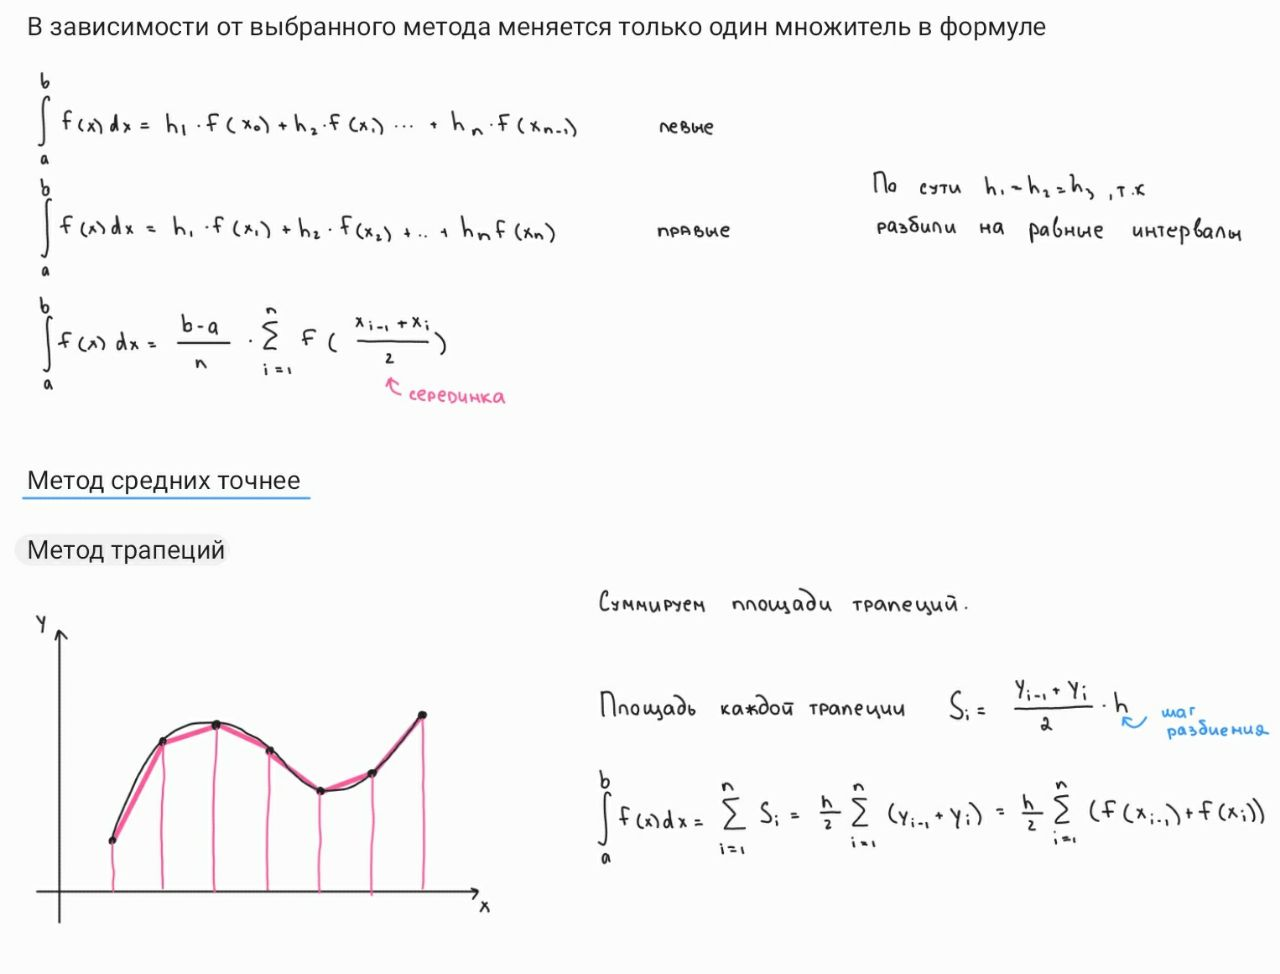 В зависимости от выбранного метода меняется только один множитель в формуле
∫ₐᵇ f(x) dx = h₁ · f(x₀) + h₂ · f(x₁) ... + hₙ · f(xₙ₋₁) левые
По сути h₁ = h₂ = h₃, т.к
∫ₐᵇ f(x) dx = h₁ · f(x₁) + h₂ · f(x₂) + .. + hₙ f(xₙ) правые
разбили на равные интервалы
∫ₐᵇ f(x) dx = (b-a)/n · ∑ᵢ₌₁ⁿ f((xᵢ₋₁ + xᵢ)/2)
серединка
Метод средних точнее
Метод трапеций
Суммируем площади трапеций.
y
Площадь каждой трапеции Sᵢ = (yᵢ₋₁ + yᵢ)/2 · h
шаг
разбиения
∫ₐᵇ f(x) dx = ∑ᵢ₌₁ⁿ Sᵢ = h/2 ∑ᵢ₌₁ⁿ (yᵢ₋₁ + yᵢ) = h/2 ∑ᵢ₌₁ⁿ (f(xᵢ₋₁) + f(xᵢ))
x